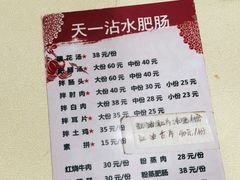 天一沾水肥肠
腰花汤 38元/份
肥肠汤 大份60元 中份40元
拌肠头 大份60元 中份40元
拌肘肉 大份50元 中份30元 小份25元
拌白肉 大份50元 中份30元 小份23元
拌耳片 大份50元
拌土鸡 35元/份
素拼 15元/份
红烧牛肉 30元/份 粉蒸肉 28元/份
30元/份 粉蒸肥肠 38元/份